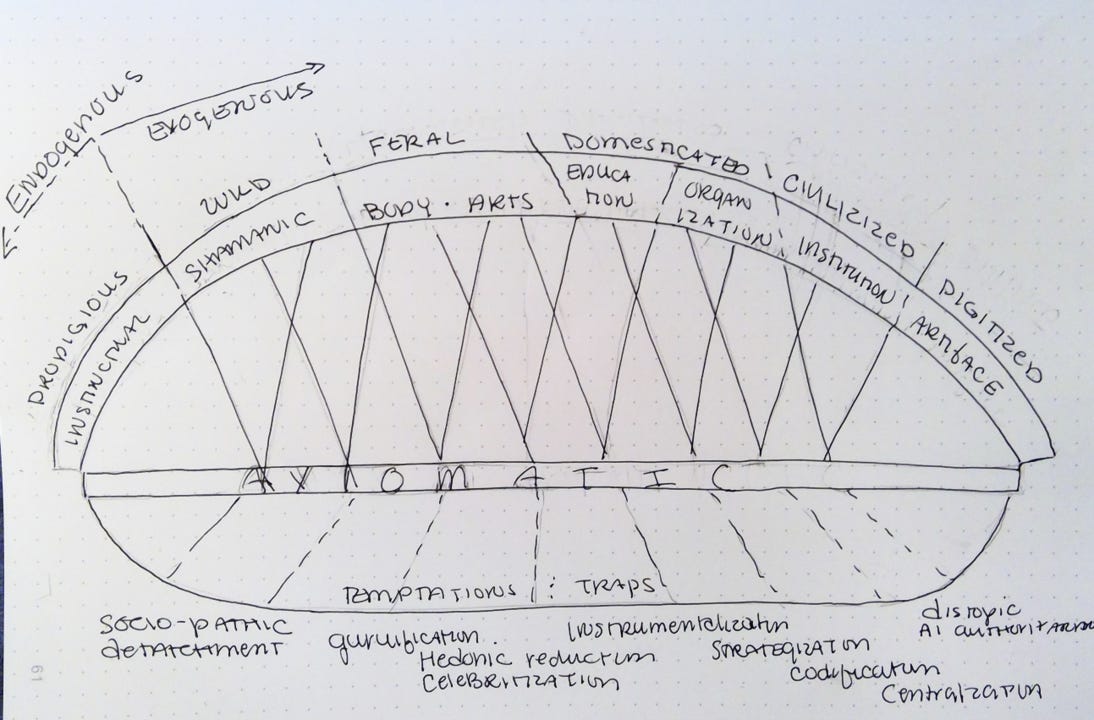 ENDOGENOUS
EXOGENOUS
PRODIGIOUS
WILD
FERAL
DOMESTICATED
CIVILIZIZED
DIGITIZED
INSTINCTUAL
SHAMANIC
BODY · ARTS
EDUCA
TION
ORGAN
IZATION
INSTITUTION
ARTIFACE
AXIOMATIC
TEMPTATIONS : TRAPS
SOCIO-PATHIC
DETATCHMENT
guruification.
Hedonic reduction
CeleBRITIZATION
Instrumentalization
STRATEGIZATION
codification
Centralization
distopic
AI authoritarian
61